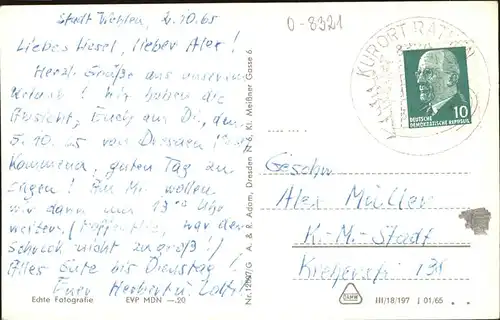 Stadt Wehlen, 2.10.65
Liebes Liesel, lieber Alex!
Herzl. Grüße aus unserem
Urlaub! Wir haben die
Absicht, Euch am Di., den
5.10.65 von Dresden
kommend, guten Tag zu
sagen! Am Mi. wollen
wir dann um 13 Uhr
weiter. (Hoffentlich war der
Schreck nicht zu groß!)
Alles Gute bis Dienstag!
Euer Herbert u.
Echte Fotografie EVP MDN —.20
Nr. G A. & R. Adam, Dresden N 6, Kl. Meißner Gasse 6
0-8321
KURORT RATHEN
DEUTSCHE
DEMOKRATISCHE REPUBLIK
10
Geschw.
Alex Müller
K.-M.-Stadt
138
III/18/197 J 01/65